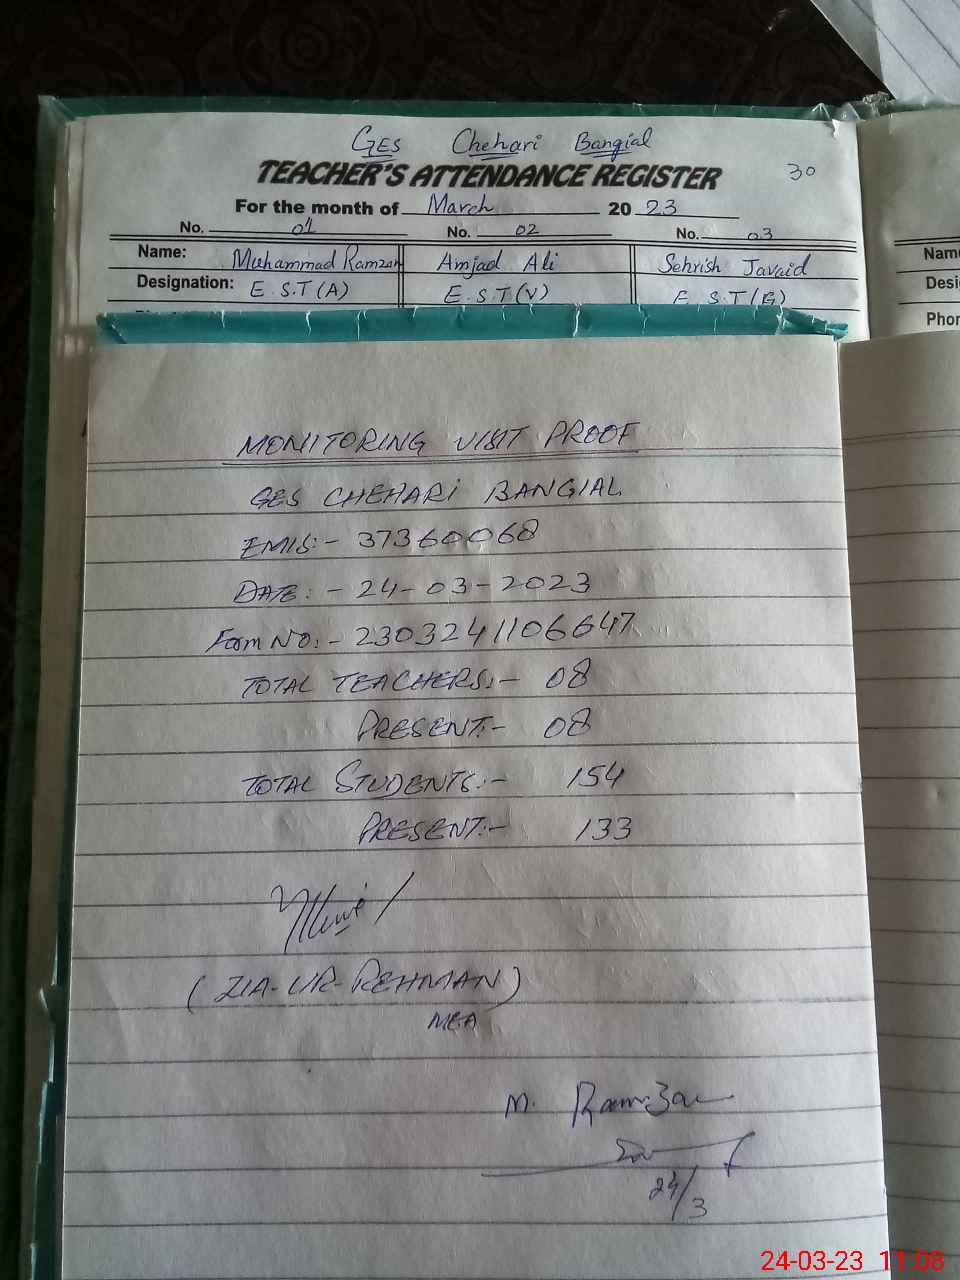 GES Chehari Bangial
TEACHER'S ATTENDANCE REGISTER 30
For the month of March 2023
No. 01 No. 02 No. 03
Name: Muhammad Ramzan Amjad Ali Sehrish Javaid
Designation: E.S.T(A) E.S.T(V) E.S.T(G)
Name
Desi
Phon
MONITORING VISIT PROOF
GES CHEHARI BANGIAL
EMIS:- 37360068
DATE:- 24-03-2023
Form NO:- 2303241106647
TOTAL TEACHERS:- 08
PRESENT:- 08
TOTAL STUDENTS:- 154
PRESENT:- 133
(ZIA-UR-REHMAN)
MEA
M. Ramzan
24/3
24-03-23 11:08